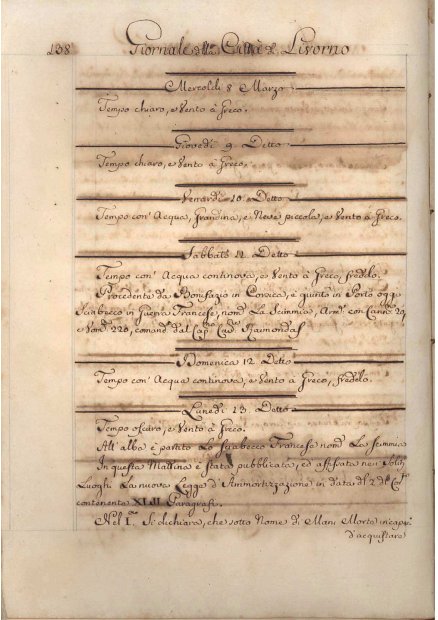 138 Giornale della Città di Livorno
Mercoledì 8 Marzo
Tempo chiaro, e Vento à Greco.
Giovedì 9 Detto
Tempo chiaro, e Vento à Greco.
Venardì 10 Detto
Tempo con' Acqua, Grandina, e Neve piccola, e Vento à Greco.
Sabbato 11 Detto
Tempo con' Acqua continova, e Vento à Greco, freddo.
Procedente da Bonifazio in Corsica, è quinto in Porto oggi
Sciabecco in Guerra Francese, nom.º La Scimmia, Arm.º con Cann. 20,
e Uom. 220, comand.º dal Cap. Cav. Raimondas
Domenica 12 Detto
Tempo con' Acqua continova, e Vento à Greco, freddo.
Lunedì 13 Detto
Tempo oscuro, e Vento à Greco.
All'alba è partito Lo Sciabecco Francese nom.º La Scimmia
In questa Mattina è stata pubblicata, ed affissata nei soliti
Luoghi La nuova Legge d'Ammortizzazione in data del 2 de Cor.te
contenente XLII Paragrafi.
Nel I.mo Si dichiara, che sotto Nome di Mani Morte incapaci
d'acquistare